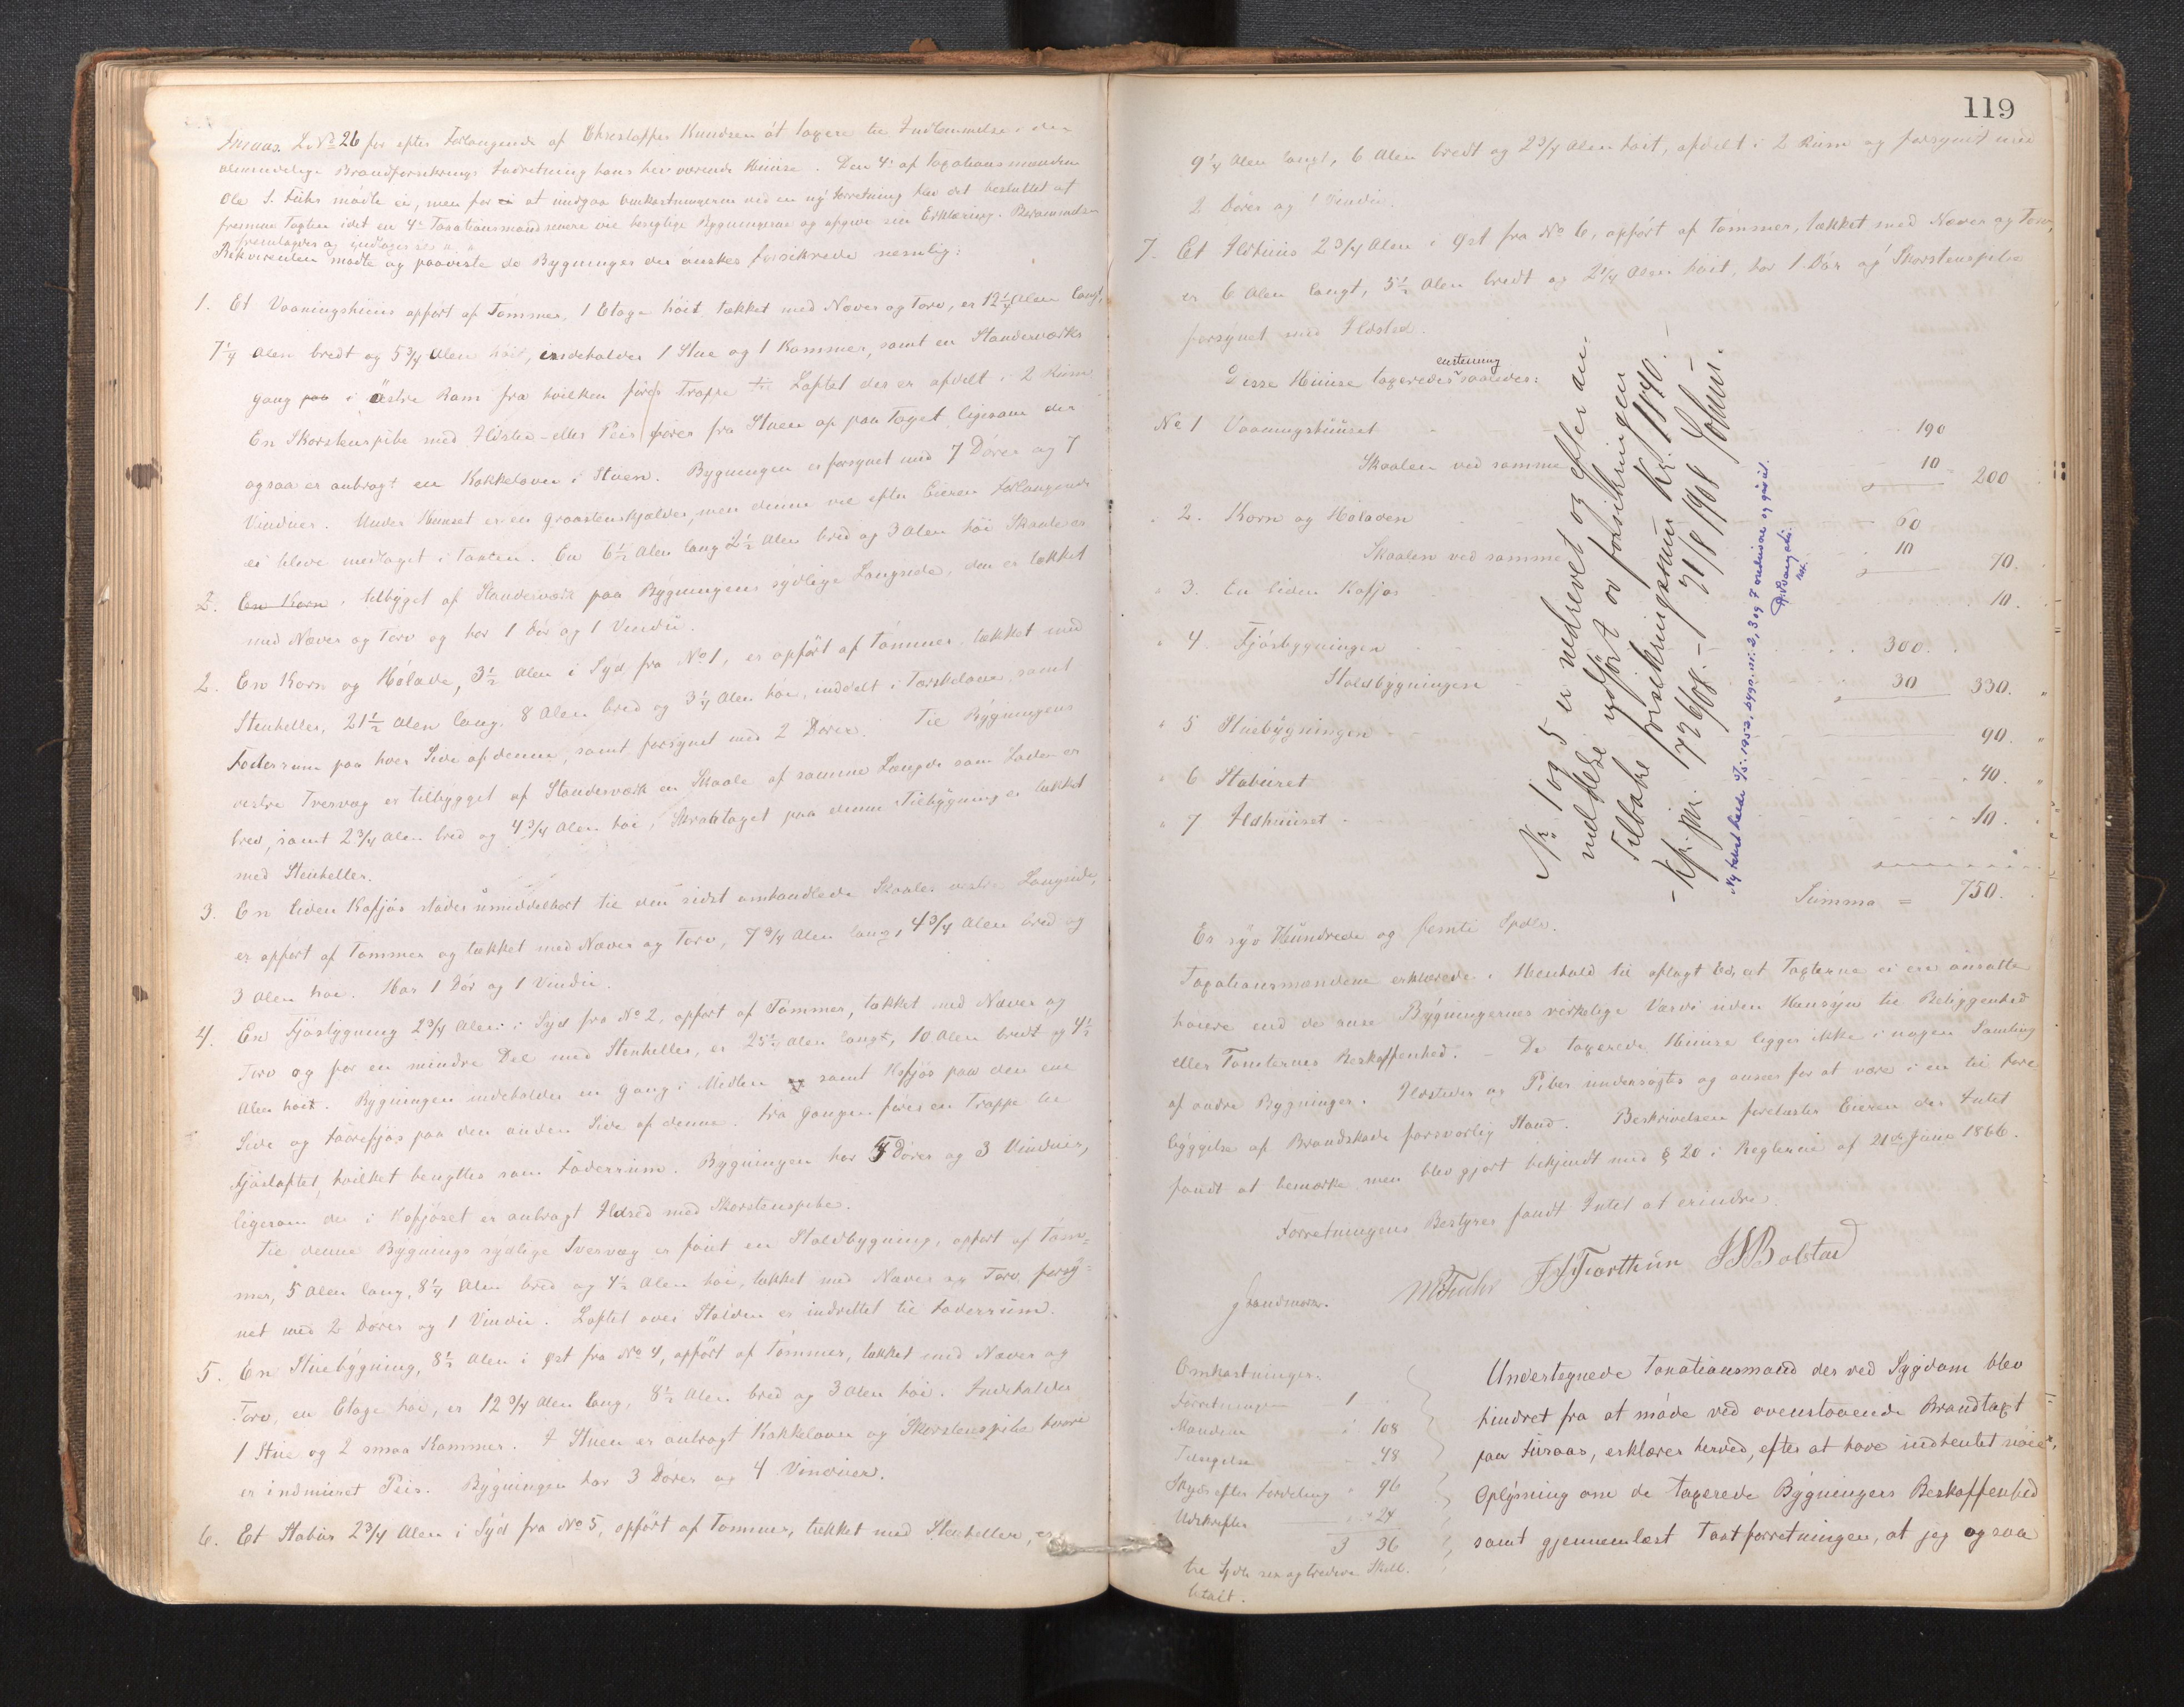 Furaas L. No 26 for efter Forlangende af Christoffer Knudsen at taxere til Indlemmelse i den
almindelige Brandforsikrings Indretning hans herværende Huuse. Den 4de af Taxationsmændene
Ole S. mødte ei, men for at undgaa Omkostningerne ved en ny Forretning blev det besluttet at
fremme Taxten idet en 4de Taxationsmand senere vil besigtige Bygningerne og afgive sin Erklæring. Berammelsen
fremlagdes og indtages
Rekvirenten mødte og paaviste de Bygninger der ønskes forsikrede nemlig:
1. Et Vaaningshuus opført af Tømmer, 1 Etage høit, tækket med Næver og Torv, er 12 1/4 Alen langt,
7 1/4 Alen bredt og 5 3/4 Alen høit, indeholder 1 Stue og 1 Kammer, samt en Standerværks
gang paa i østre Ram fra hvilken fører Trappe til Loftet der er afdelt i 2 Rum
En Skorstenspibe med Ildsted eller Peis fører fra Stuen op paa Taget, ligesom der
ogsaa er anbragt en Kakkelovn i Stuen. Bygningen er forsynet med 7 Døre og 7
Vinduer. Under Huuset er en Graastenskjælder, men denne vil efter Eieren Forlangende
ei blive medtaget i Taxten. En 6 1/2 Alen lang 2 1/2 Alen bred og 3 Alen høi Skaale er
2. En Korn. tilbygget af Standerværk paa Bygningens sydlige Langside, den er tækket
med Næver og Torv og har 1 Dør og 1 Vindu.
2. En Korn og Hølade, 3 1/2 Alen i Syd fra No 1, er opført af Tømmer, tækket med
Stenheller, 21 1/2 Alen lang, 8 Alen bred og 3 1/4 Alen høi, inddelt i Tærskelove, samt
Foderrum paa hver Side af denne, samt forsynet med 2 Døre. Til Bygningens
vestre Tversvæg er tilbygget af Standerværk en Skaale af samme Længde som Laden er
bred, samt 2 3/4 Alen bred og 4 3/4 Alen høi, Skraataget paa denne Tilbygning er tækket
med Stenheller.
3. En liden Kofjøs støder umiddelbart til den sidst omhandlede Skaales vestre Langside,
er opført af Tømmer og tækket med Næver og Torv, 7 3/4 Alen lang, 4 3/4 Alen bred og
3 Alen høi. Har 1 Dør og 1 Vindu.
4. En Fjøsbygning 2 3/4 Alen i Syd fra No 2, opført af Tømmer, tækket med Næver og
Torv og for en mindre Del med Stenheller, er 25 1/2 Alen langt, 10 Alen bredt og 4 1/2
Alen høit. Bygningen indeholder en Gang i Midten og samt Kofjøs paa den ene
Side og Faarefjøs paa den anden Side af denne. Fra Gangen fører en Trappe til
Fjøsloftet, hvilket benyttes som Foderrum. Bygningen har 5 Døre og 3 Vinduer,
ligesom der i Kofjøset er anbragt Ildsted med Skorstenspibe.
Til denne Bygnings sydlige Tversvæg er føiet en Staldbygning, opført af Tøm-
mer, 5 Alen lang, 8 1/4 Alen bred og 4 1/2 Alen høi, tækket med Næver og Torv, forsy-
net med 2 Døre og 1 Vindu. Loftet over Stalden er indrettet til Foderrum.
5. En Stuebygning, 8 1/2 Alen i Øst fra No 4, opført af Tømmer, tækket med Næver og
Torv, en Etage høi, er 12 3/4 Alen lang, 8 1/2 Alen bred og 3 Alen høi. Indeholder
1 Stue og 2 smaa Kammer. I Stuen er anbragt Kakkelovn og Skorstenspibe hvori
er indmuret Peis. Bygningen har 3 Døre og 4 Vinduer.
6. Et Stabur 2 3/4 Alen i Syd fra No 5, opført af Tømmer, tækket med Stenheller, er
119
9 1/4 Alen langt, 6 Alen bredt og 2 3/4 Alen høit, afdelt i 2 Rum og forsynet med
2 Døre og 1 Vindu.
7. Et Ildhuus 2 3/4 Alen i Øst fra No 6, opført af Tømmer, tækket med Næver og Torv,
er 6 Alen langt, 5 1/2 Alen bredt og 2 1/4 Alen høit, har 1 Dør og Skorstenspibe
forsynet med Ildsted.
Disse Huuse taxeredes enstemmig saaledes:
No 1 Vaaningshuuset 190
Skaalen ved samme 10 = 200
" 2. Korn og Høladen 60
Skaalen ved samme 10 70.
" 3. En liden Kofjøs 10.
" 4. Fjøsbygningen 300.
Staldbygningen 30 330. "
" 5 Stuebygningen 90. "
" 6 Staburet 40. "
" 7 Ildhuuset 10. "
Summa = 750.
Nr. 1 og 5 er nedrevet og efter an-
meldelse udført av forsikringen
Tilbake forsikringssum Kr. 1840.
- Kfr. jnr. 772/08. - 31/8 1908
Ny takst holdt 9/5. 1952, bygn. nr. 2, 3 og 7 ombrukne og går ut.
Er syv Hundrede og femti Spdlr.
Taxationsmændene erklærede i Henhold til aflagt Ed, at Taxterne ei ere ansatte
høiere end de anse Bygningernes virkelige Værdi uden Hensyn til Beliggenhed
eller Tomternes Beskaffenhed. - De taxerede Huuse ligger ikke i nogen Samling
af andre Bygninger. Ildsteder og Piber undersøgtes og ansees for at være i en til Fore
byggelse af Brandskade forsvarlig Stand. Beskrivelsen forelæstes Eieren der Intet
fandt at bemærke men blev gjort bekjendt med § 20 i Reglerne af 21de Juni 1866.
Forretningens Bestyrer fandt Intet at erindre.
M Fuhr J J Fortthun J S Bolstad
Omkostninger.
Forretningen 1
Mændene " 108
Tængelse 48
Skyds efter Fordeling " 96
Udskriften " 24
3 36
tre Spdlr sex og tredive Skill.
betalt.
Undertegnede Taxationsmand der ved Sygdom blev
hindret fra at møde ved ovenstaaende Brandtaxt
paa Furaas, erklærer herved, efter at have indhentet nøie
Oplysning om de taxerede Bygningers Beskaffenhed
samt gjennemlæst Taxtforretningen, at jeg ogsaa